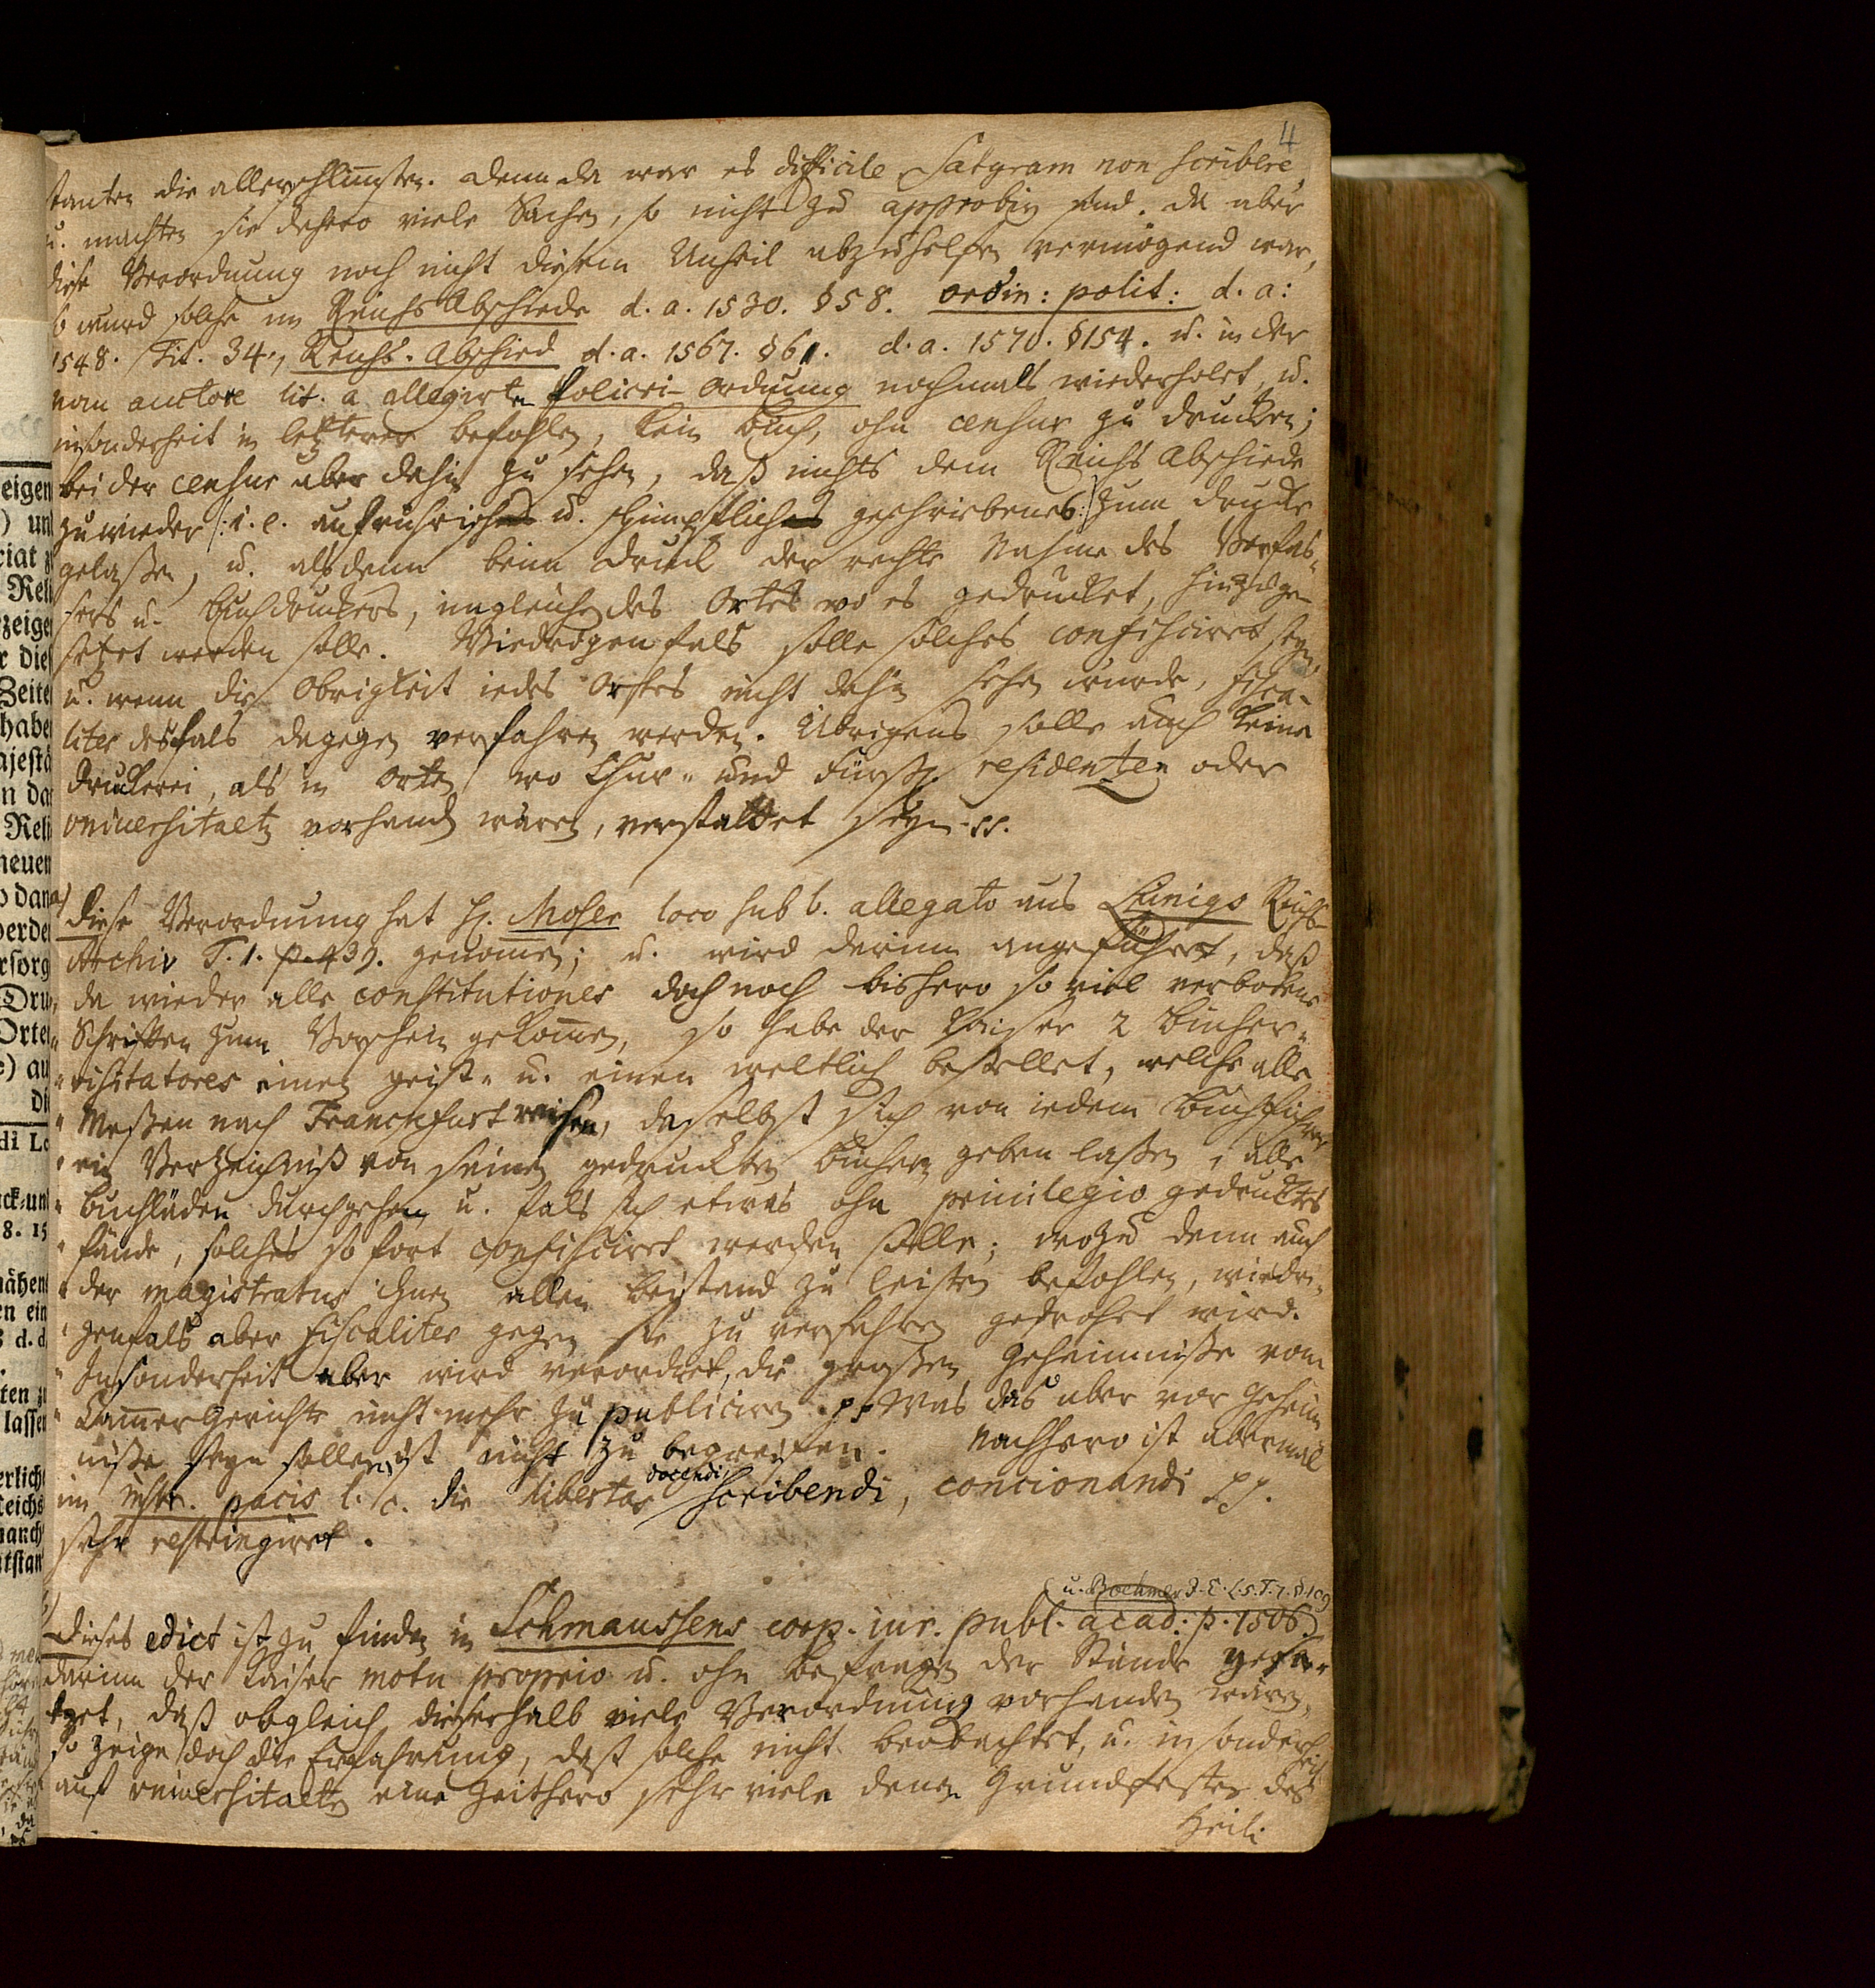 4
stanten die allerschlimsten. Denn da war es difficile Satyram non scribere,
u. machten sie dahero viele Sachen, so nicht zu approbiren sind. Da aber
diese Verordnung noch nicht diesem Unheil abzuhelfen vermögend war,
so wurd solche im Reichs Abschiede d. a. 1530. §58. ordin: polit: d. a:
1548. Tit. 34., Reichs-Abschied d. a. 1567. §61. d. a. 1570. §154. u. in der
vom auctore lit. a allegirten Policei-Ordnung nochmals wiederholet, u.
insonderheit in letzterer befohlen, kein Buch, ohn censur zu drucken;
bei der censur aber dahin zu sehen, daß nichts dem Reichs Abschiede
zuwieder /: i. e. aufrührisch u. schimpflich geschriebenes :/ zum Drucke
gelaßen, u. alsdenn beim Druck der rechte Nahme des Verfas-
sers u. Buchdruckers, imgleichen des Ortes wo es gedrucket, hinzuge-
setzet werden solle. Wiedrigenfals solle solches confisciret seyn,
u. wenn die Obrigkeit iedes Ortes nicht dahin sehen würde, fisca-
liter desfals dagegen verfahren werden. Übrigens solle auch keine
Druckerei, als in Orten wo Chur- und Fürstl. residenzen oder
vniversitaeten vorhanden wären, verstattet seyn. pp.
a) Diese Verordnung hat H. Moser loco sub b. allegato aus Lünigs Reichs-
Archiv T. 1. p. 439. genommen; u. wird darinn angeführet, daß
" da wieder alle constitutiones doch noch bishero so viel verbotene
" Schriften zum Vorschein gekommen, so habe der Kaiser 2 Bücher-
" visitatores einen geist- u. einen weltlich bestellet, welche alle
" Meßen nach Franckfurt reisen, daselbst sich von iedem Buchführer
" ein Verzeichniß von seinen gedruckten Büchern geben laßen, alle
" Buchläden durchgehen u. fals sich etwas ohn priuilegio gedrucktes
" fände, solches so fort confisciret werden solle; wozu denn auch
" der magistratus ihnen allen Beistand zu leisten befohlen, wiedri-
" genfals aber fiscaliter gegen sie zu verfahren gedrohet wird.
" Insonderheit aber wird verordnet, die großen Geheimniße vom
" Cammer Gericht nicht mehr zu publiciren. pp Was das aber vor Geheim
niße seyn sollen, ist nicht zu begreifen. Nachhero ist abermal
im instr. pacis l. c. die libertas docendi, scribendi, concionandi pp.
sehr restringiret.
(u. Boehmer J. E. L. 5. T. 7. §. 109
Dieses edict ist zu finden in Schmaussens corp. iur. publ. acad: p. 1506.)
darinn der Kaiser motu proprio u. ohn Befragen der Stände
, daß obgleich dieserhalb viele Verordnung vorhanden wären,
so zeige doch die Erfahrung, daß solche nicht beobachtet, u. insonderheit
auf vniversitaeten eine Zeithero sehr viele denen Grundfesten des
Heili